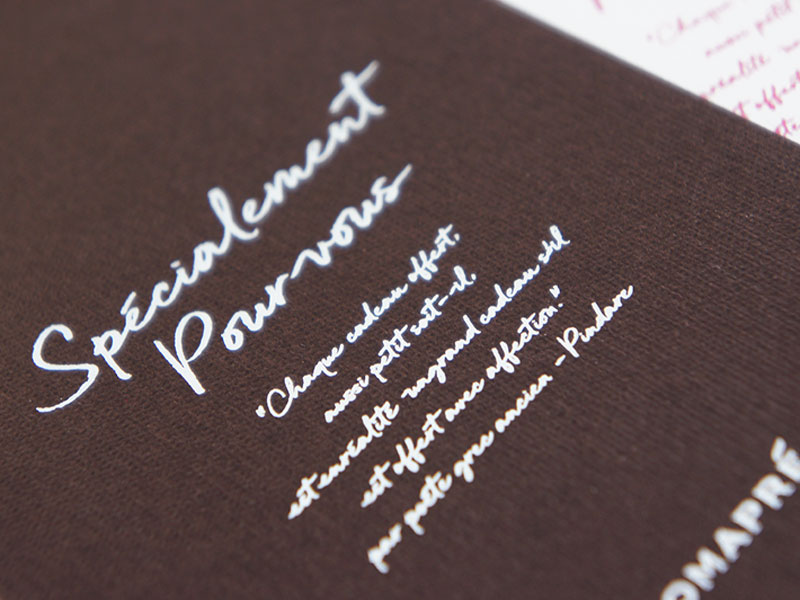 Spécialement
Pour vous
"Chaque cadeau offert,
aussi petit soit-il,
est enréalité ungrand cadeau s'il
est offert avec affection."
par poète grec ancien - Pindare
OMAPRÉ
"Chaque
aussi petit